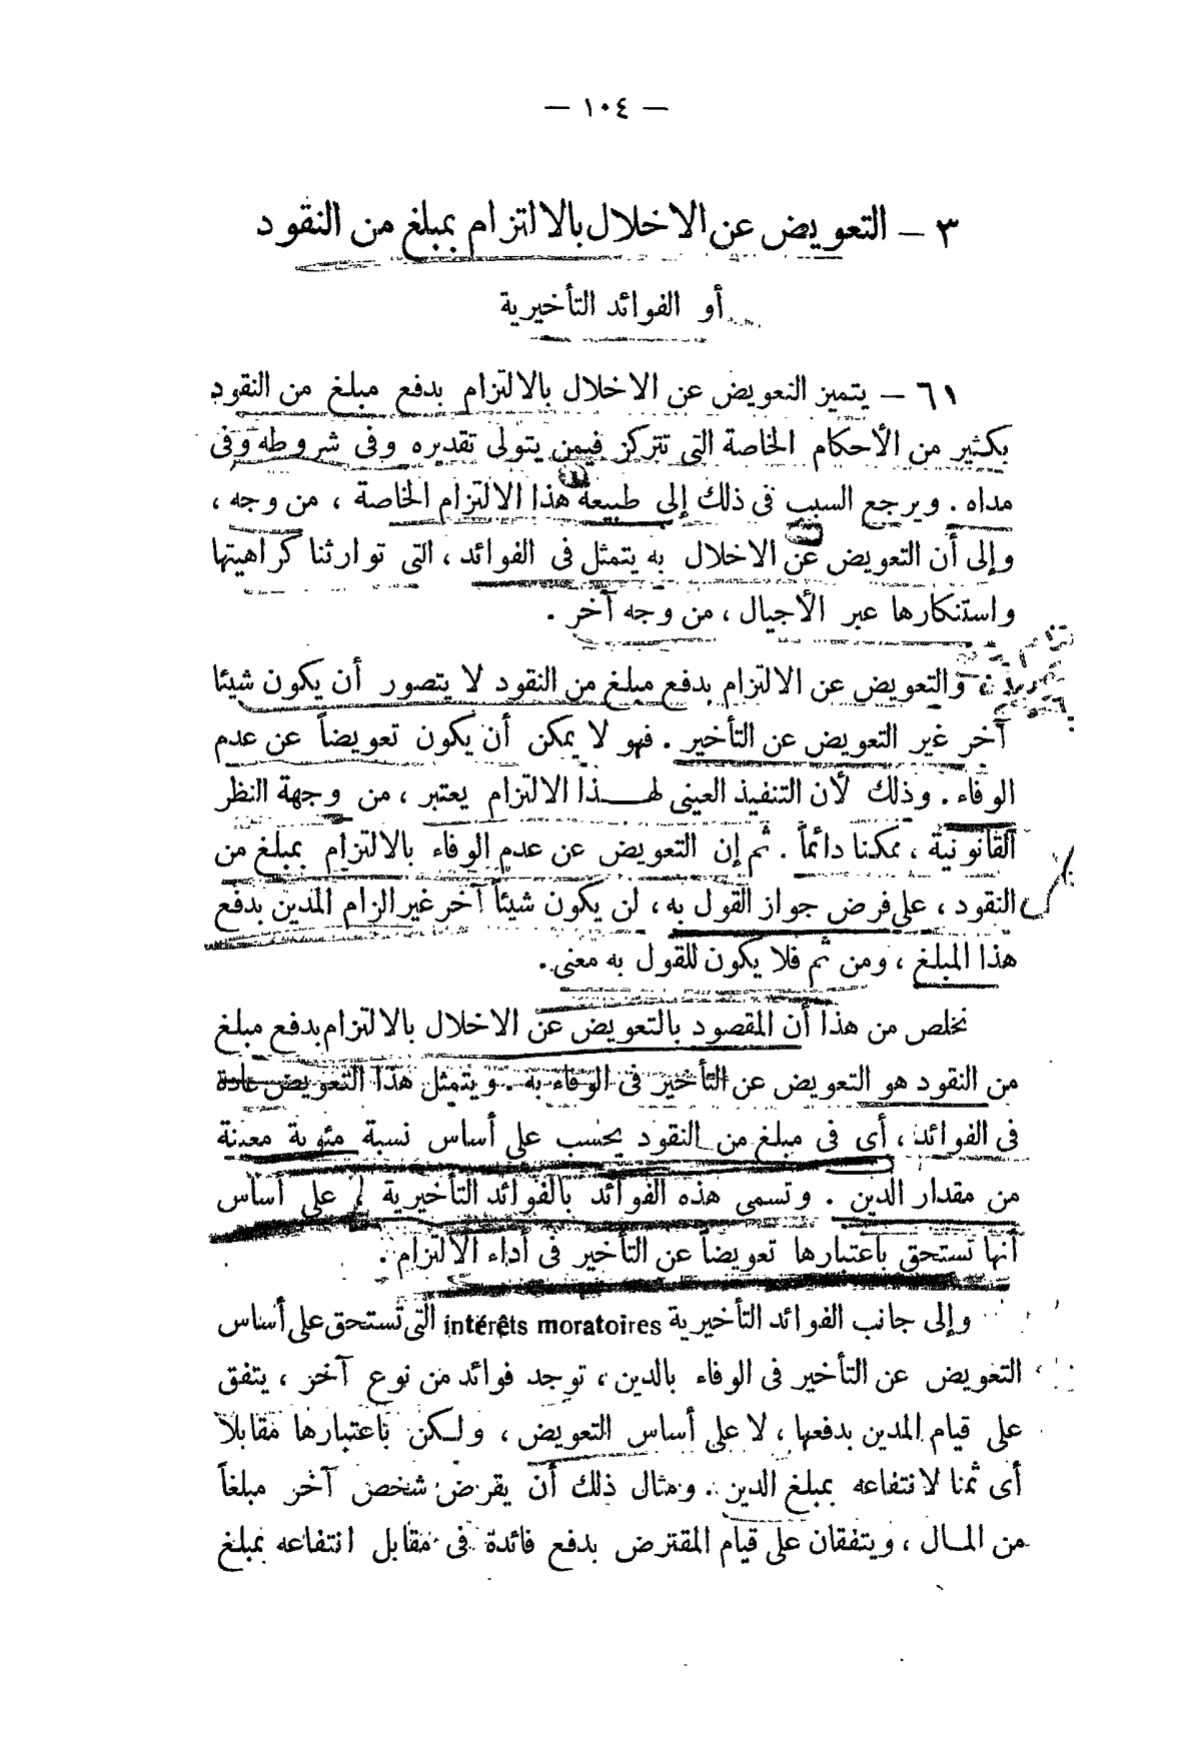 — ١٠٤ —
٣ – التعويض عن الاخلال بالالتزام بمبلغ من النقود
أو الفوائد التأخيرية
٦١ – يتميز التعويض عن الاخلال بالالتزام بدفع مبلغ من النقود
بكثير من الأحكام الخاصة التى تتركز فيمن يتولى تقديره وفى شروطه وفى
مداه . ويرجع السبب فى ذلك إلى طبيعة هذا الالتزام الخاصة ، من وجه ،
وإلى أن التعويض عن الاخلال به يتمثل فى الفوائد ، التى توارثنا كراهيتها
واستنكارها عبر الأجيال ، من وجه آخر .
والتعويض عن الالتزام بدفع مبلغ من النقود لا يتصور أن يكون شيئا
آخر غير التعويض عن التأخير . فهو لا يمكن أن يكون تعويضاً عن عدم
الوفاء . وذلك لأن التنفيذ العينى لهــذا الالتزام يعتبر ، من وجهة النظر
القانونية ، ممكنا دائماً . ثم إن التعويض عن عدم الوفاء بالالتزام بمبلغ من
النقود ، على فرض جواز القول به ، لن يكون شيئاً آخر غير الزام المدين بدفع
هذا المبلغ ، ومن ثم فلا يكون للقول به معنى .
نخلص من هذا أن المقصود بالتعويض عن الاخلال بالالتزام بدفع مبلغ
من النقود هو التعويض عن التأخير فى الوفاء به . ويتمثل هذا التعويض عادة
فى الفوائد ، أى فى مبلغ من النقود يحسب على أساس نسبة مئوية معينة
من مقدار الدين . وتسمى هذه الفوائد بالفوائد التأخيرية ، على أساس
أنها تستحق باعتبارها تعويضاً عن التأخير فى أداء الالتزام .
وإلى جانب الفوائد التأخيرية intérêts moratoires التى تستحق على أساس
التعويض عن التأخير فى الوفاء بالدين ، توجد فوائد من نوع آخر ، يتفق
على قيام المدين بدفعها ، لا على أساس التعويض ، ولكن باعتبارها مقابلا
أى ثمنا لانتفاعه بمبلغ الدين . ومثال ذلك أن يقرض شخص آخر مبلغاً
من المـال ، ويتفقان على قيام المقترض بدفع فائدة فى مقابل انتفاعه بمبلغ